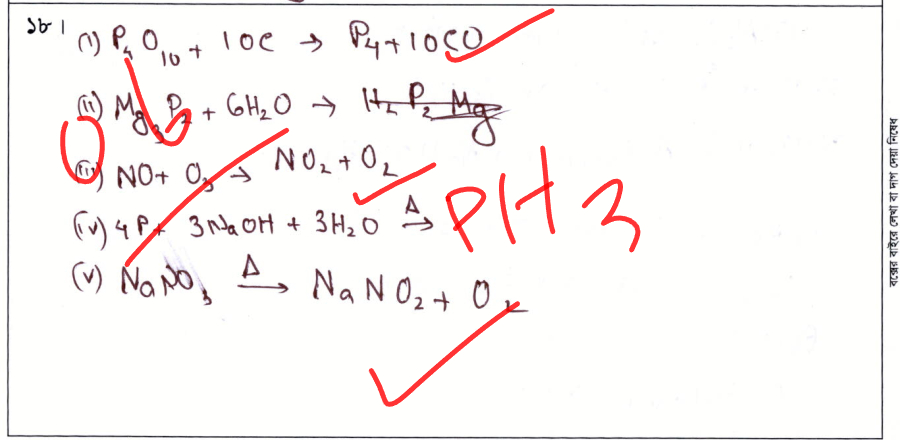 ১৮।
(i) P₄O₁₀ + 10C → P₄ + 10CO
(ii) Mg₃P₂ + 6H₂O → H₂ P₂ Mg
(iii) NO + O₃ → NO₂ + O₂
(iv) 4P + 3NaOH + 3H₂O →Δ PH3
(v) NaNO₃ →Δ NaNO₂ + O₂
বক্সের বাইরে লেখা বা দাগ দেয়া নিষেধ